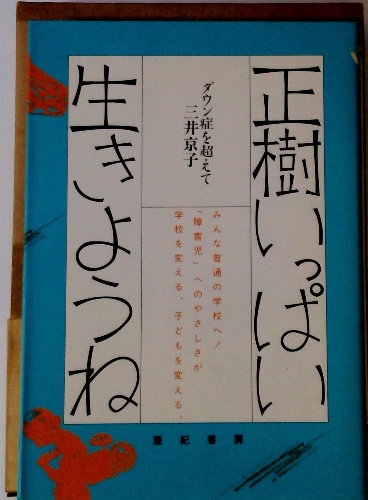 正樹いっぱい
生きようね
ダウン症を超えて
三井京子
みんな普通の学校へ！
「障害児」へのやさしさが
学校を変える、子どもを変える。
亜紀書房